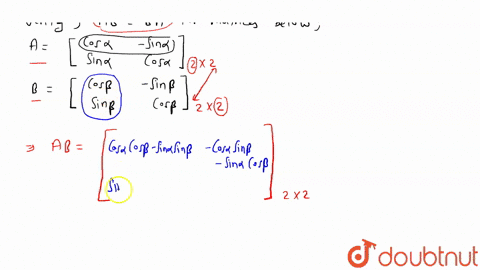 verify, AB = BA for matrices below,
A = [ Cosα -Sinα
Sinα Cosα ] 2 × 2
B = [ Cosβ -Sinβ
Sinβ Cosβ ] 2 × 2
⇒ AB = [ Cosα Cosβ - Sinα Sinβ -Cosα Sinβ
- Sinα Cosβ
Sin ] 2 × 2
doubtnut